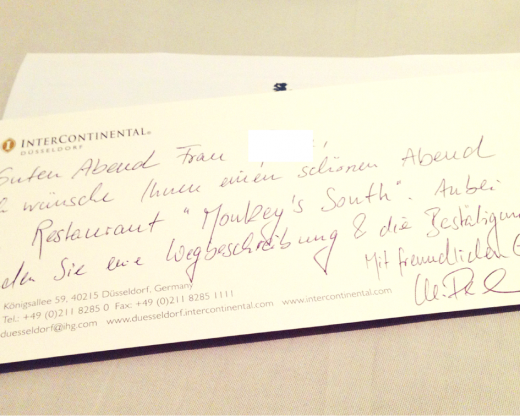 INTERCONTINENTAL
DÜSSELDORF
Guten Abend Frau
wünsche Ihnen einen schönen Abend
Restaurant "Monkey's South". Anbei
Sie eine Wegbeschreibung & die Bestätigung
Mit freundlichen
Königsallee 59, 40215 Düsseldorf, Germany
Tel.: +49 (0)211 8285 0 Fax: +49 (0)211 8285 1111
duesseldorf@ihg.com www.duesseldorf.intercontinental.com www.intercontinental.com